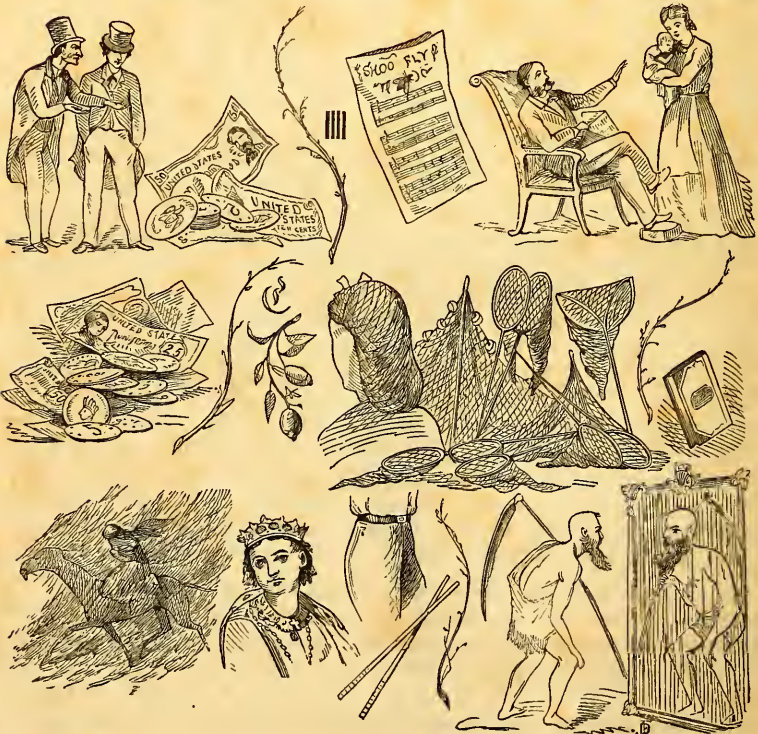 50
UNITED STATES
UNITED
STATES
TEN CENTS
SHOO FLY
UNITED STATE
25
50